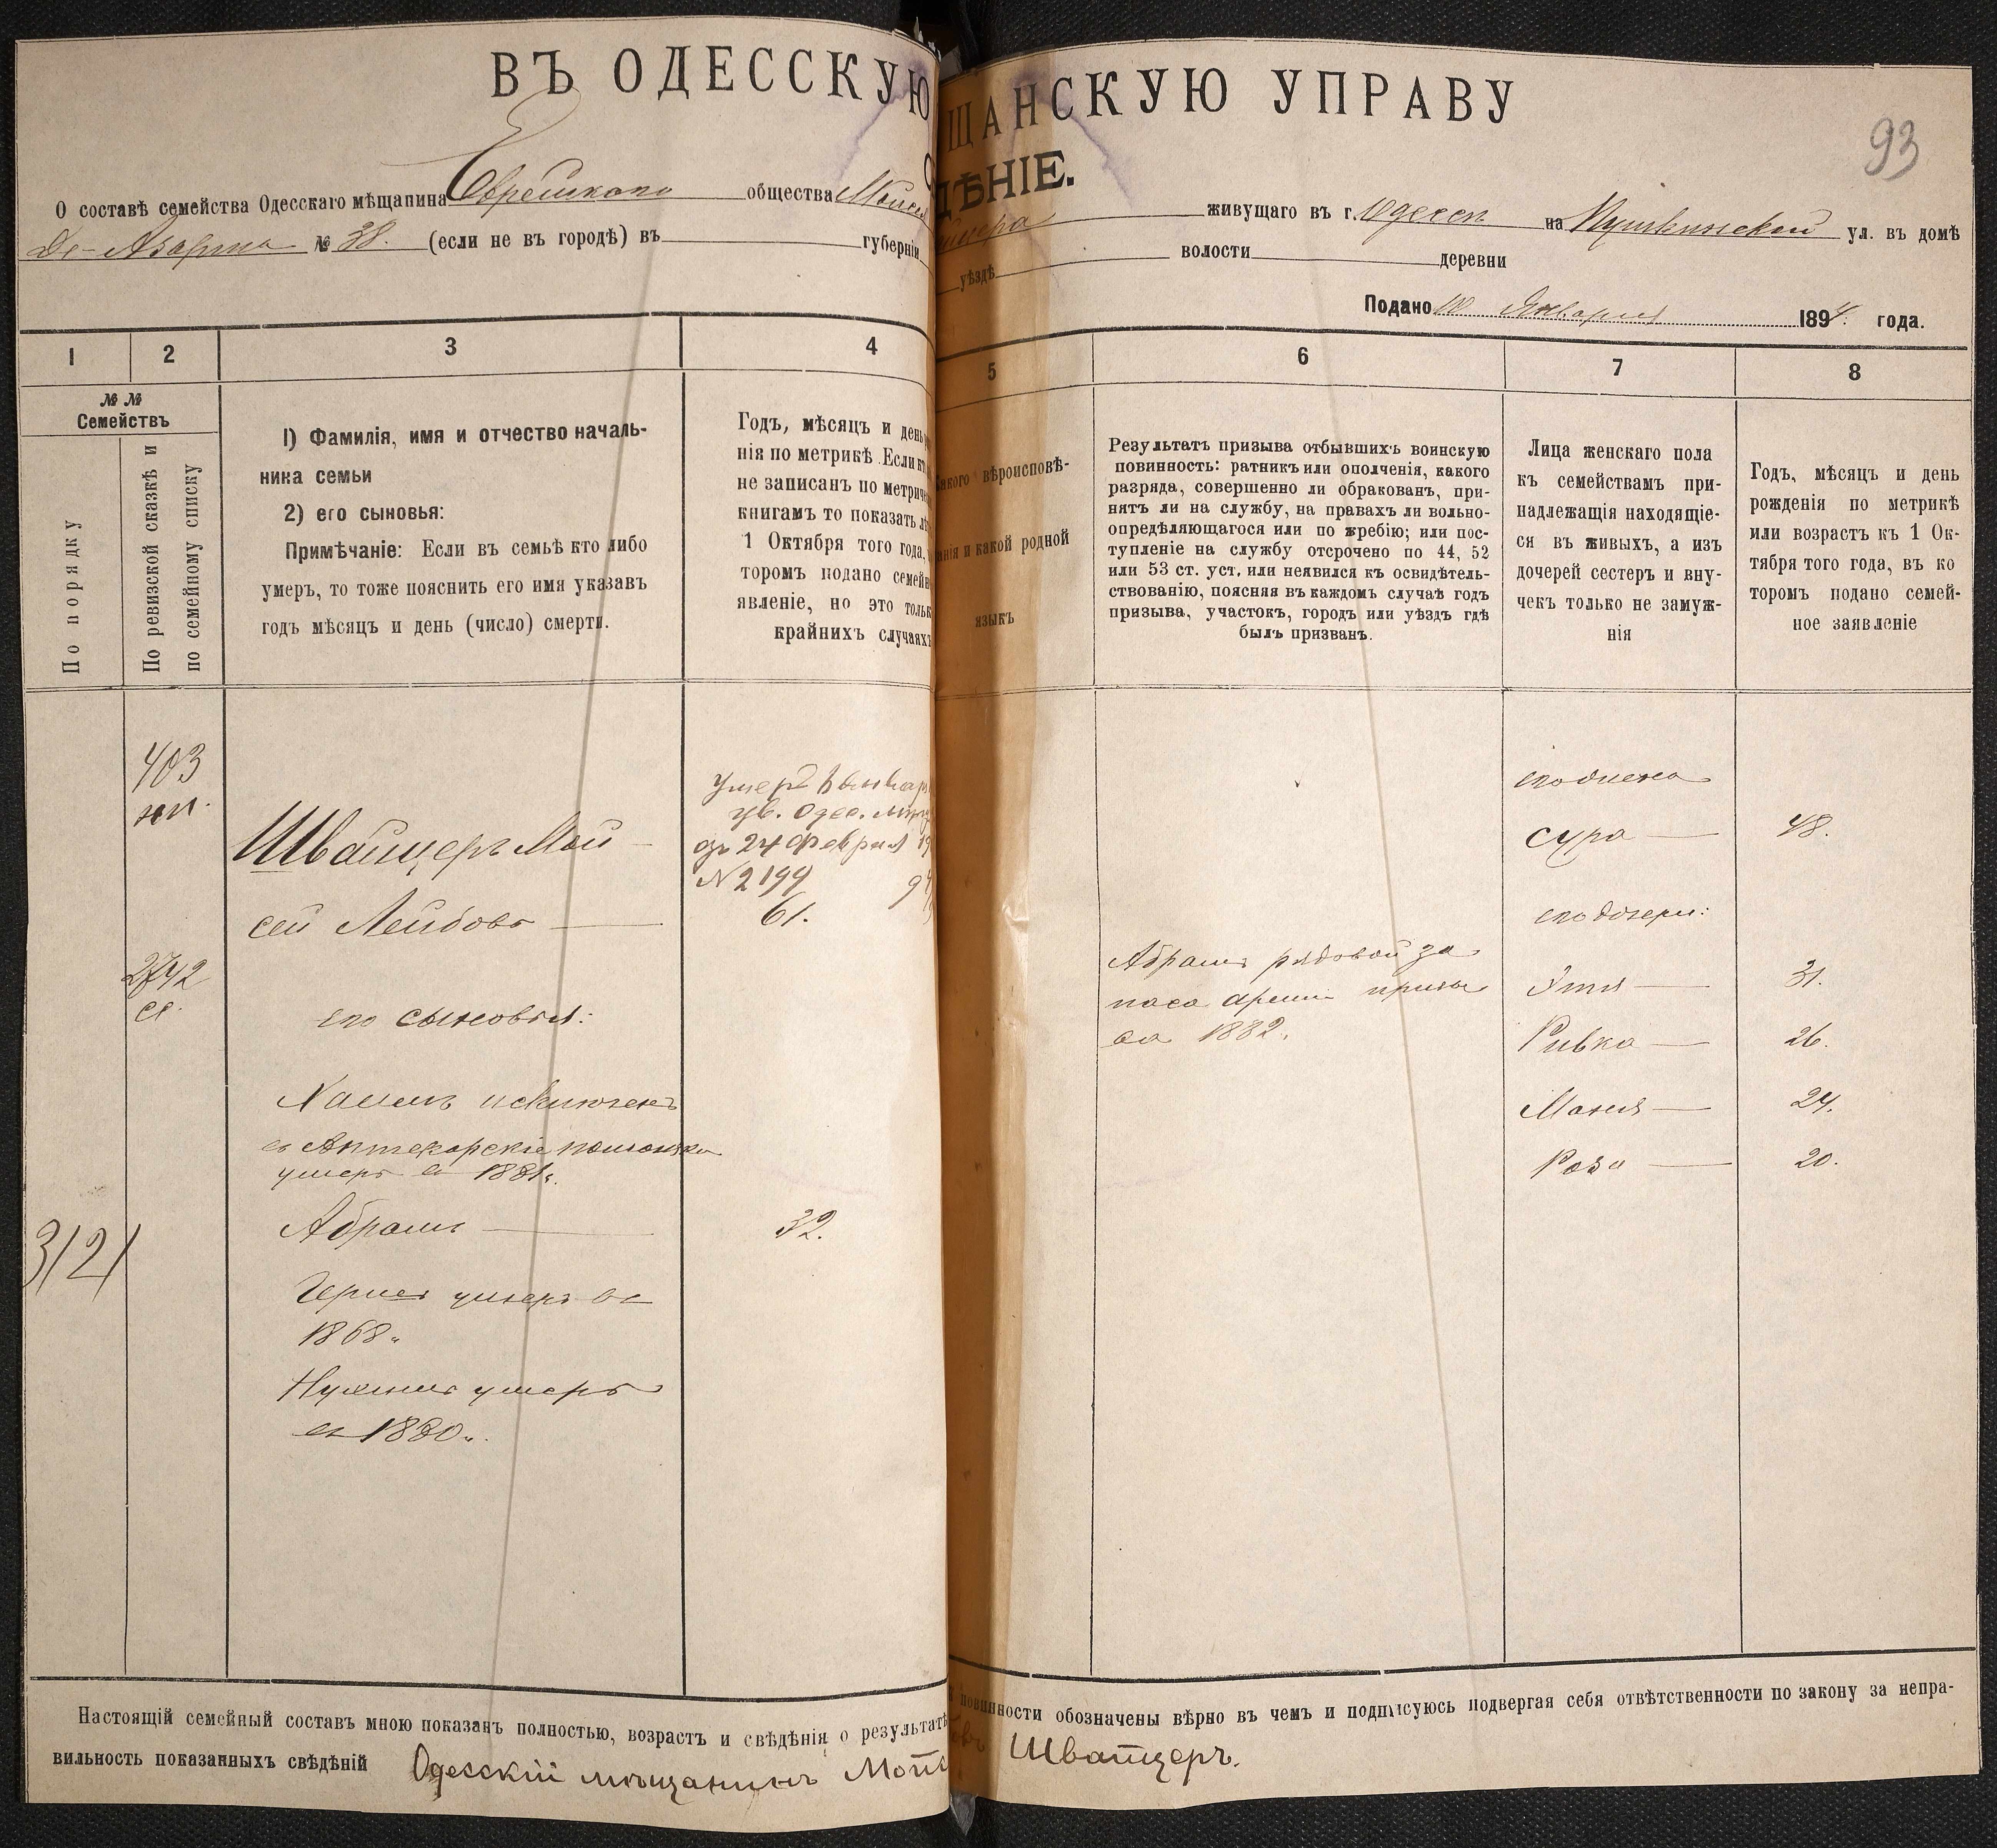 ВЪ ОДЕССКУЮ ЩАНСКУЮ УПРАВУ
93
ДѢНІЕ.
О составѣ семейства Одесскаго мѣщанина Еврейскаго общества Моисея живущаго въ г. Одессѣ на Пушкинской ул. въ домѣ
Де-Азарта № 38. (если не въ городѣ) въ губерніи уѣздѣ волости деревни
Подано 10 Января 1894. года.
1 2 3 4 5 6 7 8
№ №
Семействъ
По порядку
По ревизской сказкѣ и
по семейному списку
1) Фамилія, имя и отчество началь-
ника семьи
2) его сыновья:
Примѣчаніе: Если въ семьѣ кто либо
умеръ, то тоже пояснить его имя указавъ
годъ мѣсяцъ и день (число) смерти.
Годъ, мѣсяцъ и день
нія по метрикѣ. Если
не записанъ по метриче
книгамъ то показать
1 Октября того года,
торомъ подано семей
явленіе, но это только
крайнихъ случаяхъ
какого вѣроисповѣ-
данія и какой родной
языкъ
Результатъ призыва отбывшихъ воинскую
повинность: ратникъ или ополченія, какого
разряда, совершенно ли обракованъ, при-
нятъ ли на службу, на правахъ ли вольно-
опредѣляющагося или по жребію; или пос-
тупленіе на службу отсрочено по 44, 52
или 53 ст. уст. или неявился къ освидѣтель-
ствованію, поясняя въ каждомъ случаѣ годъ
призыва, участокъ, городъ или уѣздъ гдѣ
былъ призванъ.
Лица женскаго пола
къ семействамъ при-
надлежащія находящіе-
ся въ живыхъ, а изъ
дочерей сестеръ и вну-
чекъ только не замуж-
нія
Годъ, мѣсяцъ и день
рожденія по метрикѣ
или возрастъ къ 1 Ок-
тября того года, въ ко
торомъ подано семей-
ное заявленіе
403
2742
3121
Швайцеръ Мой
сей Лейбовъ
его сыновья:
Хаимъ исключенъ
въ Аптекарскіе помощники
умеръ въ 1881г.
Абрамъ
Гершъ умеръ въ
1868г.
Нухимъ умеръ
въ 1880г.
Умеръ
Одес.
24 Февраля
№ 2199
61.
32.
Абрамъ рядовой за
паса арміи призы
ва 1882.
его жена
Сура 48.
его дочери:
Этя 31.
Ривка 26.
Маня 24.
Роза 20.
Настоящій семейный составъ мною показанъ полностью, возрастъ и свѣдѣнія о результатѣ повинности обозначены вѣрно въ чемъ и подписуюсь подвергая себя отвѣтственности по закону за непра-
вильность показанныхъ свѣдѣній Одесскій мѣщанинъ Швайцеръ.